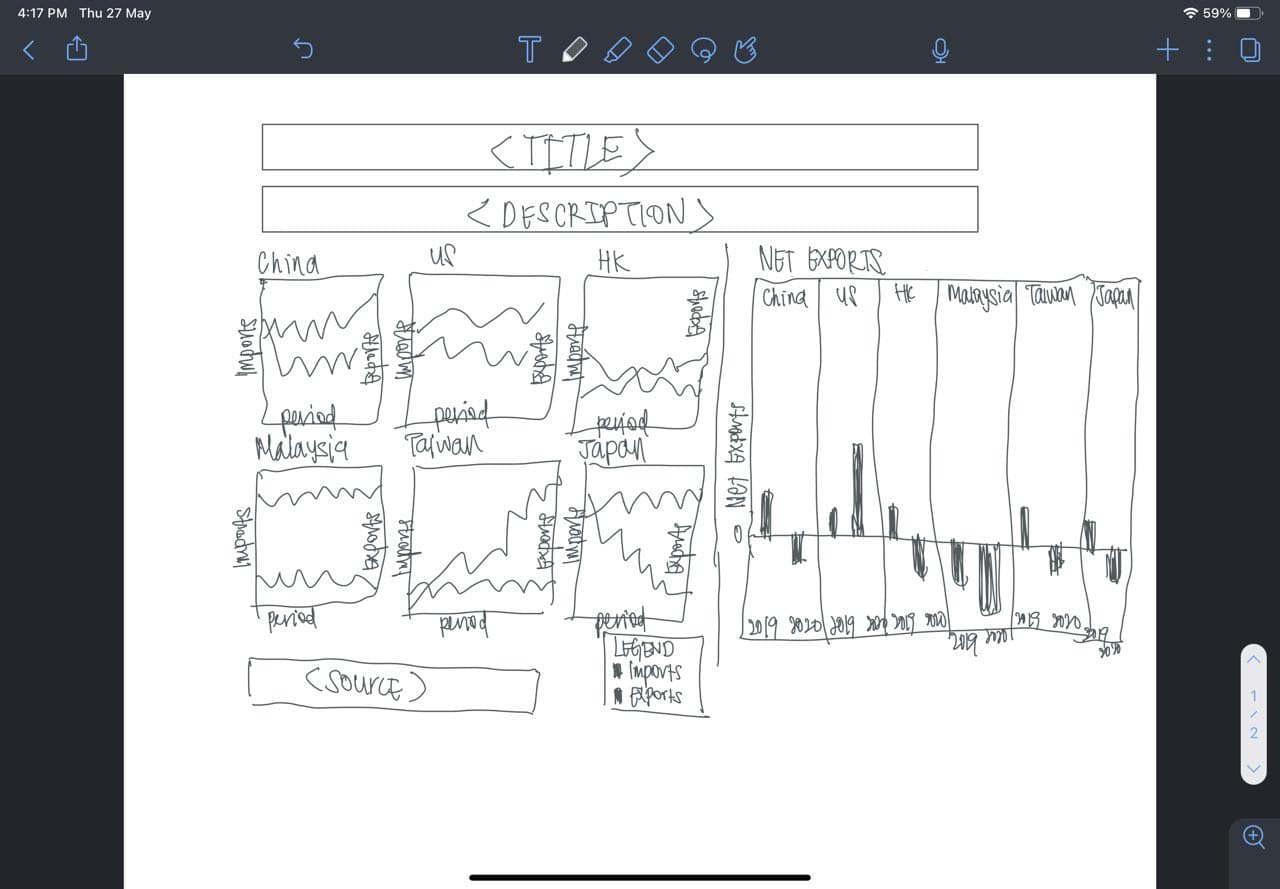 4:17 PM Thu 27 May
59%
<TITLE>
<DESCRIPTION>
China
US
HK
Imports
Exports
period
Imports
Exports
period
Imports
Exports
period
Malaysia
Taiwan
Japan
Imports
Exports
period
Imports
Exports
period
Imports
Exports
period
<SOURCE>
LEGEND
Imports
Exports
NET EXPORTS
China US HK Malaysia Taiwan Japan
Net Exports
0
2019 2020 2019 2020 2019 2020 2019 2020 2019 2020 2019 2020
1
/
2